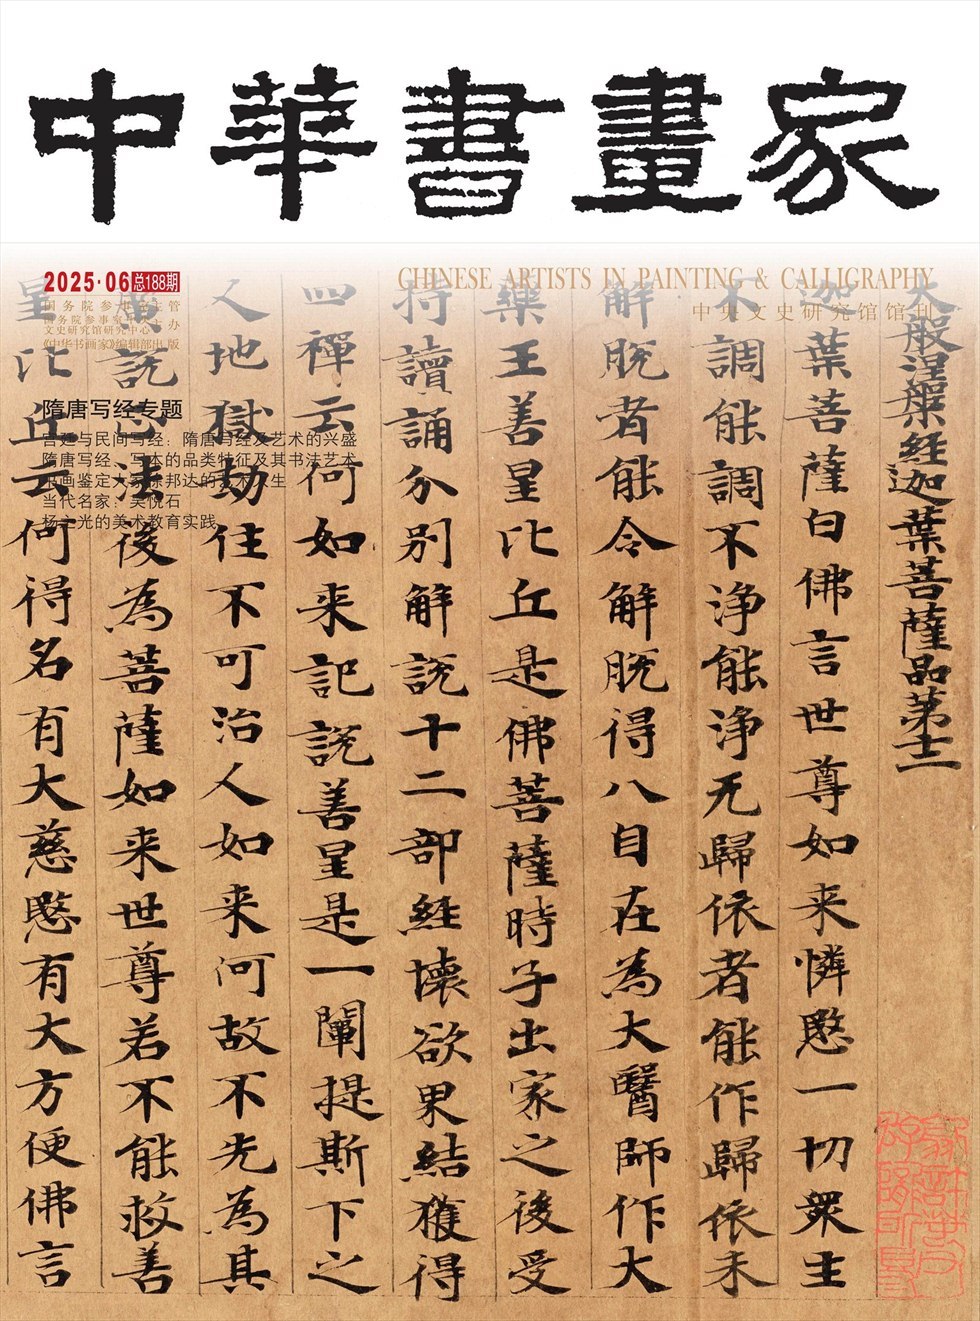 中華書畫家
2025·06 总188期
CHINESE ARTISTS IN PAINTING & CALLIGRAPHY
中央文史研究馆馆刊
国务院参事室主管
国务院参事室主办
文史研究馆研究中心
《中华书画家》编辑部出版
隋唐写经专题
宫廷与民间写经：隋唐写经及艺术的兴盛
隋唐写经、写本的品类特征及其书法艺术
书画鉴定大家徐邦达的艺术人生
当代名家：吴悦石
杨之光的美术教育实践
大般涅槃經迦葉菩薩品第十二
迦葉菩薩白佛言世尊如来憐愍一切眾生
不調能調不浄能浄无歸依者能作歸依未
解脫者能令解脫得八自在為大醫師作大
藥王善星比丘是佛菩薩時子出家之後受
持讀誦分別解說十二部經壞欲界結獲得
四禪云何如来記說善星是一闡提斯下之
人地獄劫住不可治人如来何故不先為其
說正法後為菩薩如来世尊若不能救善
星比丘云何得名有大慈愍有大方便佛言